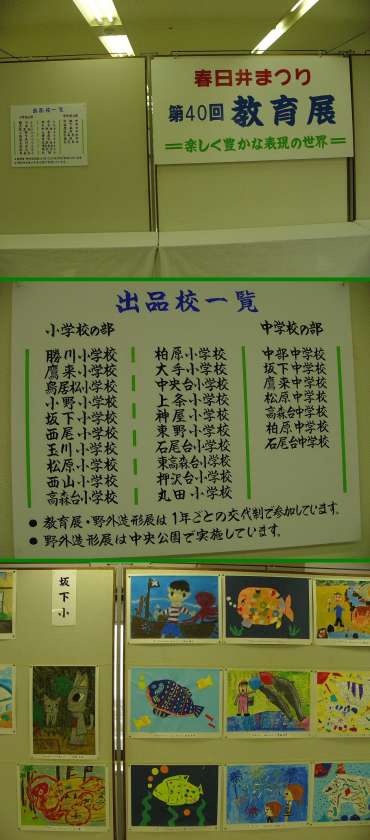 出品校一覧
春日井まつり
第40回 教育展
=楽しく豊かな表現の世界=
出品校一覧
小学校の部
勝川小学校
鷹来小学校
鳥居松小学校
小野小学校
坂下小学校
西尾小学校
玉川小学校
松原小学校
西山小学校
高森台小学校
柏原小学校
大手小学校
中央台小学校
上条小学校
神屋小学校
東野小学校
石尾台小学校
東高森台小学校
押沢台小学校
丸田小学校
中学校の部
中部中学校
坂下中学校
鷹来中学校
松原中学校
高森台中学校
柏原中学校
石尾台中学校
● 教育展・野外造形展は1年ごとの交代制で参加しています。
● 野外造形展は中央公園で実施しています。
坂下小